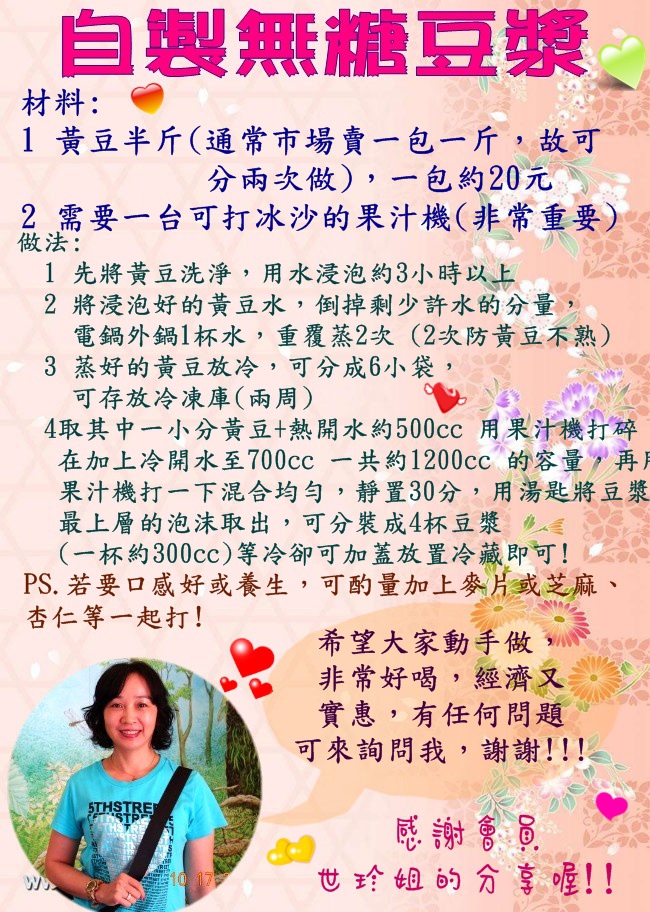 自製無糖豆漿
材料:
1 黃豆半斤(通常市場賣一包一斤，故可
分兩次做)，一包約20元
2 需要一台可打冰沙的果汁機(非常重要)
做法:
1 先將黃豆洗淨，用水浸泡約3小時以上
2 將浸泡好的黃豆水，倒掉剩少許水的分量，
電鍋外鍋1杯水，重覆蒸2次 (2次防黃豆不熟)
3 蒸好的黃豆放冷，可分成6小袋，
可存放冷凍庫(兩周)
4取其中一小分黃豆+熱開水約500cc 用果汁機打碎
在加上冷開水至700cc 一共約1200cc 的容量，再用
果汁機打一下混合均勻，靜置30分，用湯匙將豆漿
最上層的泡沫取出，可分裝成4杯豆漿
(一杯約300cc)等冷卻可加蓋放置冷藏即可!
PS.若要口感好或養生，可酌量加上麥片或芝麻、
杏仁等一起打!
希望大家動手做，
非常好喝，經濟又
實惠，有任何問題
可來詢問我，謝謝!!!
5THSTREE
5THSTREE
10 17
感謝會員
世珍姐的分享喔!!